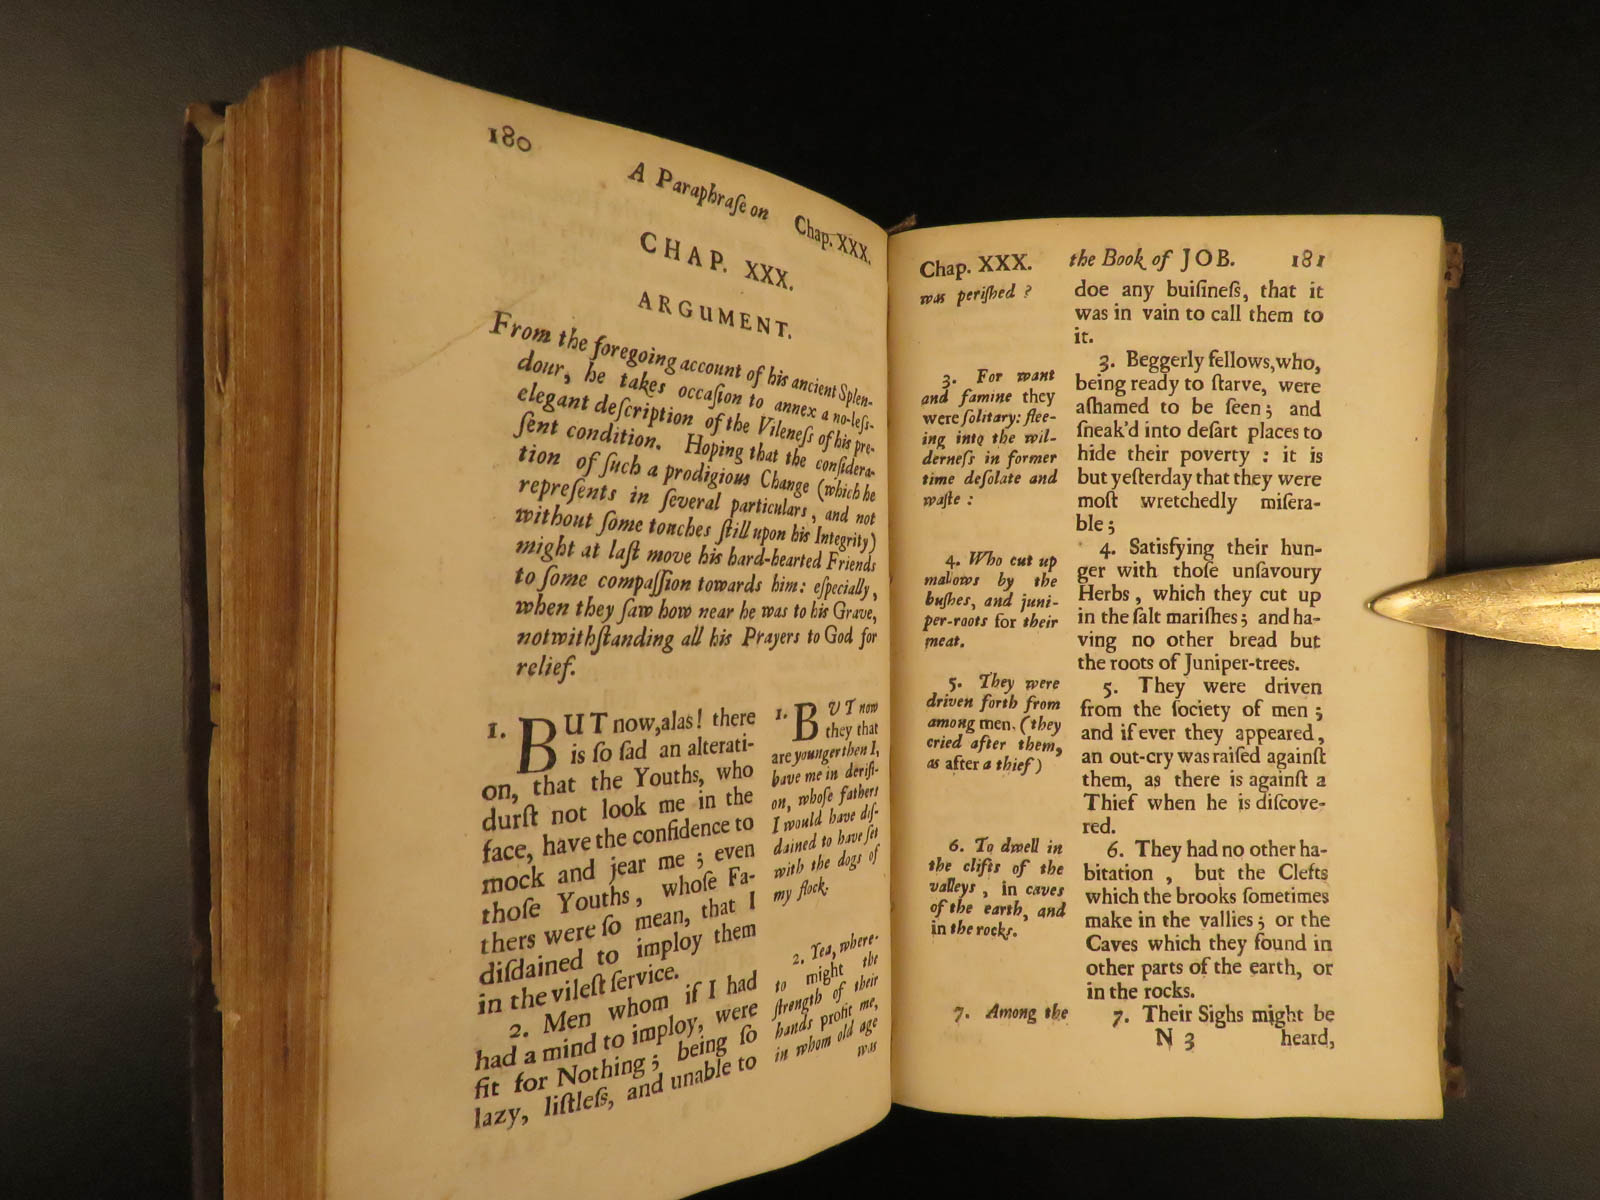 180
A Paraphraſe on Chap. XXX.
CHAP. XXX.
ARGUMENT.
From the foregoing account of his ancient Splen-
dour, he takes occaſion to annex a no-leſs-
elegant deſcription of the Vileneſs of his pre-
ſent condition. Hoping that the conſidera-
tion of ſuch a prodigious Change (which he
repreſents in ſeveral particulars, and not
without ſome touches ſtill upon his Integrity)
might at laſt move his hard-hearted Friends
to ſome compaſſion towards him: eſpecially,
when they ſaw how near he was to his Grave,
notwithſtanding all his Prayers to God for
relief.
1. BUT now, alas! there
is ſo ſad an alterati-
on, that the Youths, who
durſt not look me in the
face, have the confidence to
mock and jear me; even
thoſe Youths, whoſe Fa-
thers were ſo mean, that I
diſdained to imploy them
in the vileſt ſervice.
2. Men whom if I had
had a mind to imploy, were
fit for Nothing; being ſo
lazy, liſtleſs, and unable to
1. BUT now
they that
are younger then I,
have me in deriſi-
on, whoſe fathers
I would have diſ-
dained to have ſet
with the dogs of
my flock.
2. Yea, where-
to might the
ſtrength of their
hands profit me,
in whom old age
was
Chap. XXX. the Book of JOB. 181
was periſhed?
3. For want
and famine they
were ſolitary: flee-
ing into the wil-
derneſs in former
time deſolate and
waſte:
4. Who cut up
mallows by the
buſhes, and juni-
per-roots for their
meat.
5. They were
driven forth from
among men. (they
cried after them,
as after a thief)
6. To dwell in
the clifts of the
valleys, in caves
of the earth, and
in the rocks.
7. Among the
doe any buiſineſs, that it
was in vain to call them to
it.
3. Beggerly fellows, who,
being ready to ſtarve, were
aſhamed to be ſeen; and
ſneak'd into deſart places to
hide their poverty: it is
but yeſterday that they were
moſt wretchedly miſera-
ble;
4. Satisfying their hun-
ger with thoſe unſavoury
Herbs, which they cut up
in the ſalt mariſhes; and ha-
ving no other bread but
the roots of Juniper-trees.
5. They were driven
from the ſociety of men;
and if ever they appeared,
an out-cry was raiſed againſt
them, as there is againſt a
Thief when he is diſcove-
red.
6. They had no other ha-
bitation, but the Clefts
which the brooks ſometimes
make in the vallies; or the
Caves which they found in
other parts of the earth, or
in the rocks.
7. Their Sighs might be
N 3 heard,